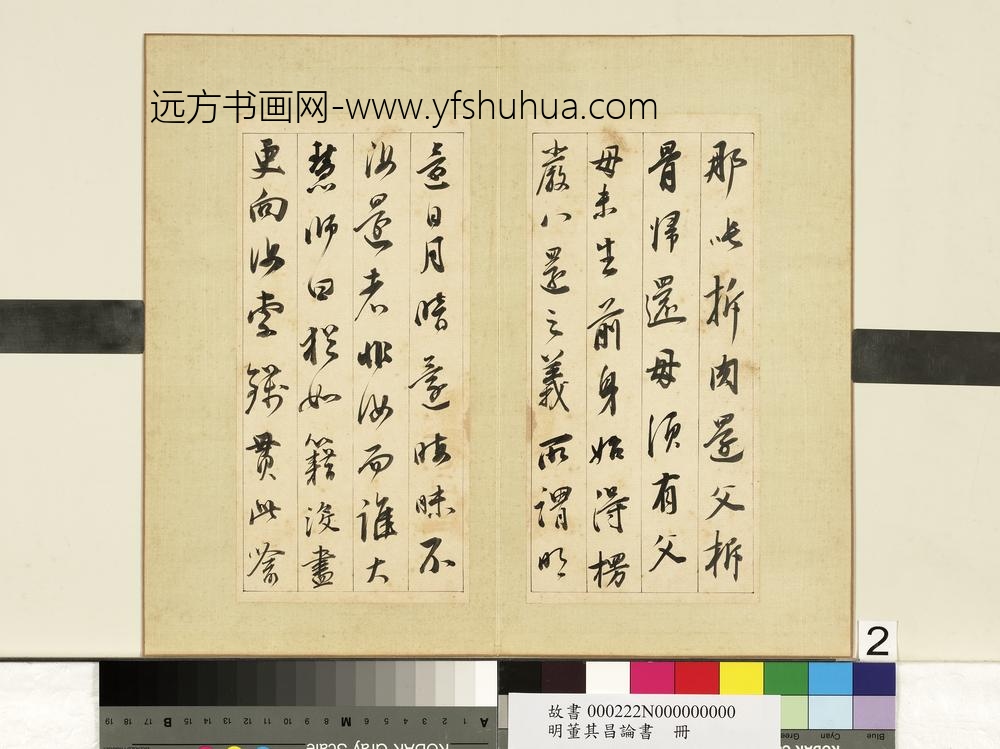 远方书画网-www.yfshuhua.com
那叱拆肉還父拆
骨歸還母須有父
母未生前身始得楞
嚴八還之義所謂明
還日月暗還晦昧不
汝還者非汝而誰大
慧師曰猶如籍沒盡
更向汝索錢貫此喻
2
故書 000222N000000000
明董其昌論書 冊
19 18 17 16 15 14 13 12 11 10 9 8 7 6 5 4 3 2 1
B
M
A
KODAK Gray Scale
Green
Cyan
Blue